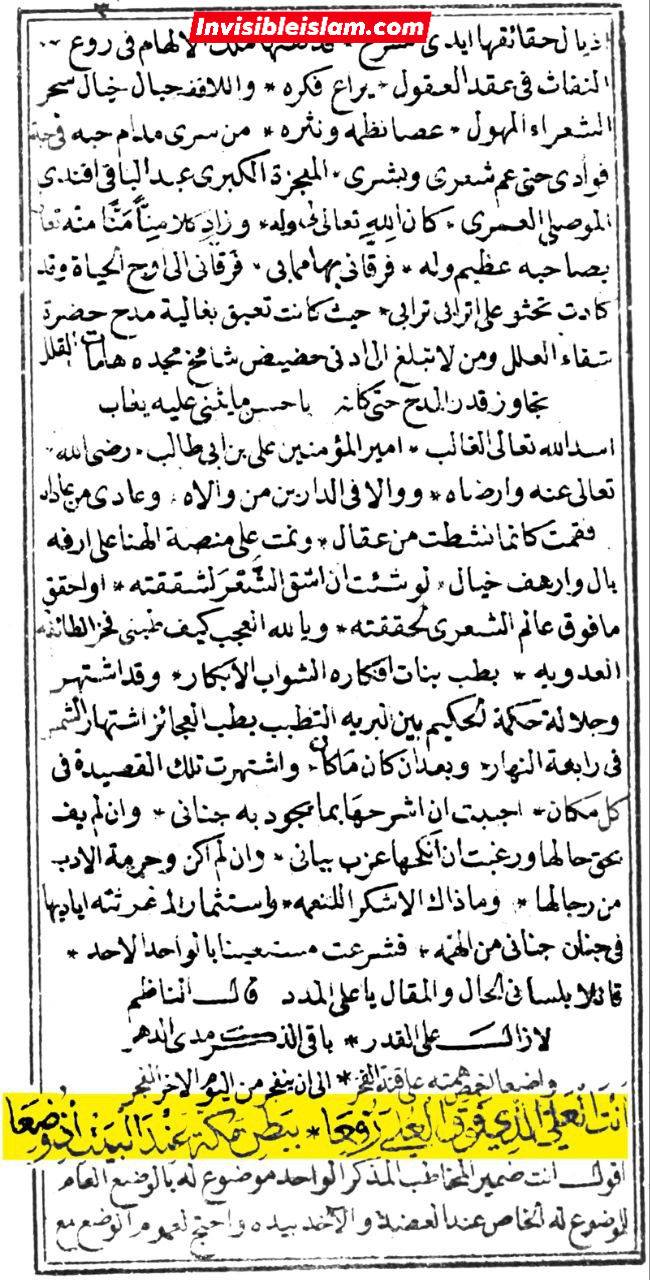 ٣
Invisibleislam.com
اذيال حقائقها ايدى الالهام فى روع
النفاث فى عقد العقول * يراع فكره * واللاقف حبال خيال سحر
الشعراء المهول * عصا نظمه ونثره * من سرى مدام حبه فى
فوادى حتى عم شعرى وبشرى * المعجزة الكبرى عبد الباقى افندى
الموصلى العمرى * كان الله تعالى له وله * وزاد كلا منا منا منه تعالى
بصاحبه عظيم وله * فرقانى بها مما بى * فرقانى الى اوج الحياة وقد
كادت تحثو على اترابى ترابى * حيث كانت تعبق بغالية مدح حضرة
شفاء العلل ومن لا تبلغ الى ادنى حضيض شامخ مجده هامات القلل
تجاوز قدر المدح حتى كانه باحسن ما يثنى عليه يعاب
اسد الله تعالى الغالب * امير المؤمنين على بن ابى طالب * رضى الله
تعالى عنه وارضاه * ووالا فى الدارين من والاه * وعادى من عاداه
فقمت كانما نشطت من عقال * ونمت على منصة الهنا على ارفه
بال وارهف خيال * لو شئت ان اشق الشعر لشققته * او احقق
ما فوق عالم الشعرى لحققته * ويا لله العجب كيف طبنى فخر الطائفة
العدويه * بطب بنات افكاره الشواب الابكار * وقد اشتهر
وجلالة حكمة الحكيم بين البريه التطبب بطب العجائز اشتهار الشمس
فى رابعة النهار * وبعد ان كان ما كان * واشتهرت تلك القصيدة فى
كل مكان * احببت ان اشرحها بما يجود به جنانى * وان لم يف
بحق حالها ورغبت ان انكحها عزب بيانى * وان لم اكن وحرمة الادب
من رجالها * وما ذاك الا شكرا للنعمه * واستثمارا لما غرسته اياديها
فى جنان جنانى من الهمه * فشرعت مستعينا بالواحد الاحد *
قائلا بلسانى الحال والمقال يا على المدد قال الناظم
لا زال على القدر * باقى الذكر مدى الدهر
واضعا اخمص همته على قنة الفخر * الى ان ينفجر من اليوم الاخر الفجر
اَنْتَ الْعَلِيُّ الَّذِي فَوْقَ الْعُلَى رُفِعَا * بِبَطْنِ مَكَّةَ عِنْدَ الْبَيْتِ اِذْ وُضِعَا
اقول انت ضمير المخاطب المذكر الواحد موضوع له بالوضع العام
للموضوع له الخاص عند العضد والاخذ بيده واحتج لعموم الوضع مع